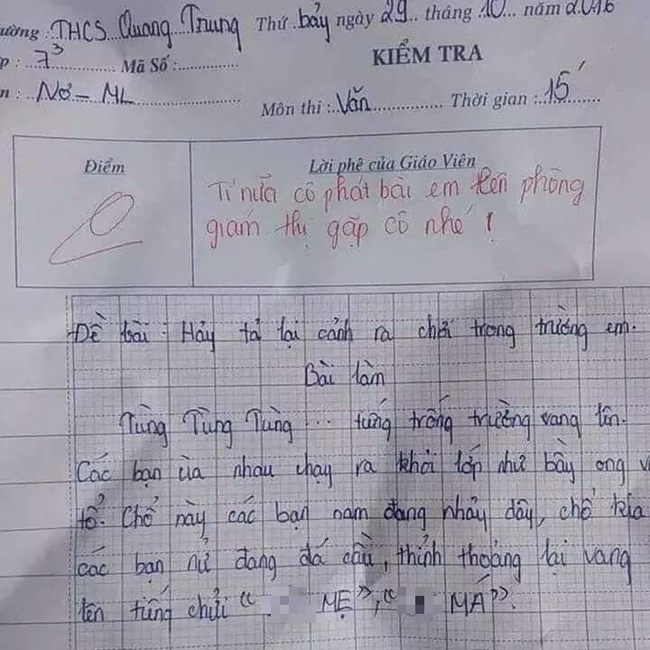 ường : THCS Quang Trung Thứ bảy ngày 29 tháng 10 năm 2016
p : 7³ Mã Số :
KIỂM TRA
n : Nơ - ML
Môn thi : Văn Thời gian : 15'
Điểm
Lời phê của Giáo Viên
Tí nữa cô phát bài em lên phòng
giám thị gặp cô nhé !
Đề bài : Hảy tả lại cảnh ra chơi trong trường em.
Bài làm
Tùng Tùng Tùng ... tiếng trống trường vang lên.
Các bạn ùa nhau chạy ra khỏi lớp như bầy ong v
tổ. Chổ này các bạn nam đang nhảy dây, chổ kia
các bạn nử đang đá cầu, thỉnh thoảng lại vang
lên tiếng chửi " MẸ", " MÁ".